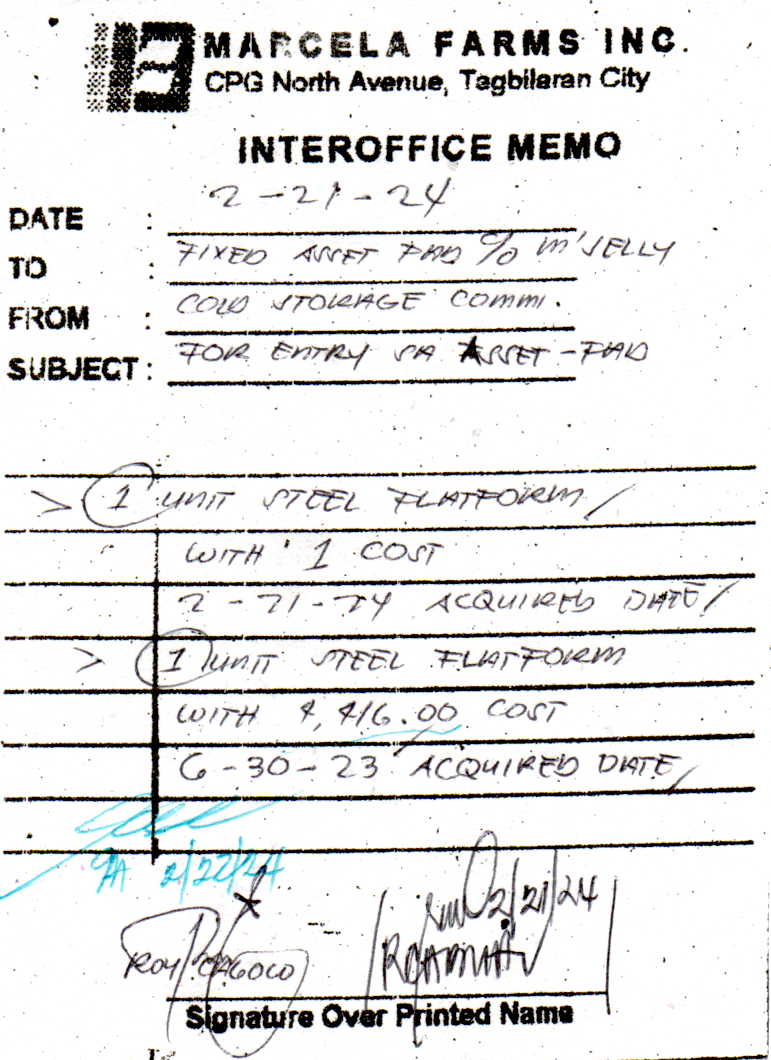 MARCELA FARMS INC.
CPG North Avenue, Tagbilaran City
INTEROFFICE MEMO
DATE : 2-21-24
TO : FIXED ASSET FAD c/o M'JELLY
FROM : COLD STORAGE COMMI.
SUBJECT : FOR ENTRY SA ASSET-FAD
> 1 UNIT STEEL FLATFORM
WITH 1 COST
2-21-24 ACQUIRED DATE
> 1 UNIT STEEL FLATFORM
WITH 4,416.00 COST
6-30-23 ACQUIRED DATE
2/22/24
2/21/24
ROY CAGOCO
Signature Over Printed Name